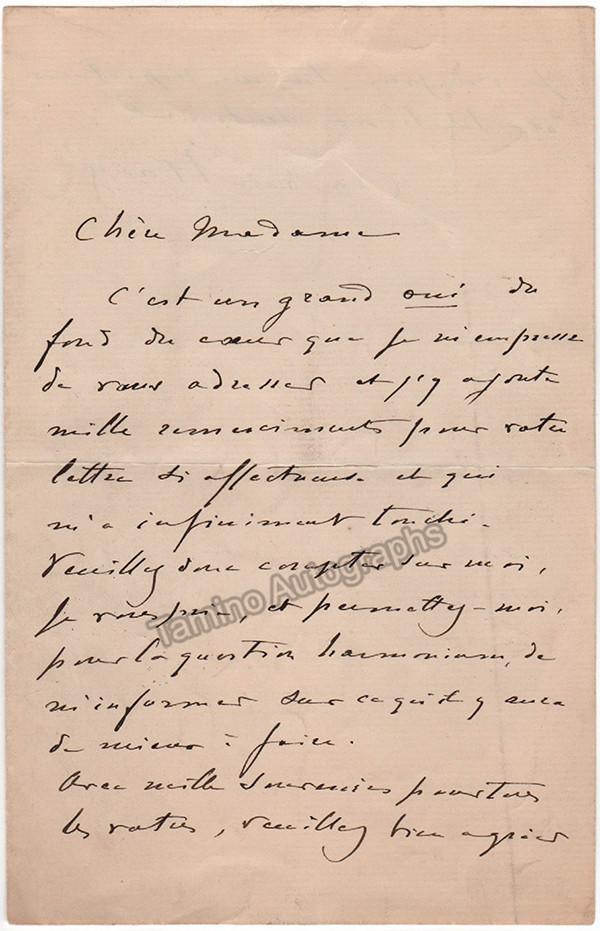 Chère Madame
C'est un grand oui du
fond du cœur que je m'empresse
de vous adresser et j'y ajoute
mille remerciments pour votre
lettre si affectueuse et qui
m'a infiniment touché.
Veuillez donc compter sur moi,
je vous prie, et permettez-moi,
pour la question harmonium, de
m'informer sur ce qu'il y aura
de mieux à faire.
Avec mille souvenirs pour tous
les votres, veuillez bien agréer
Tamino Autographs